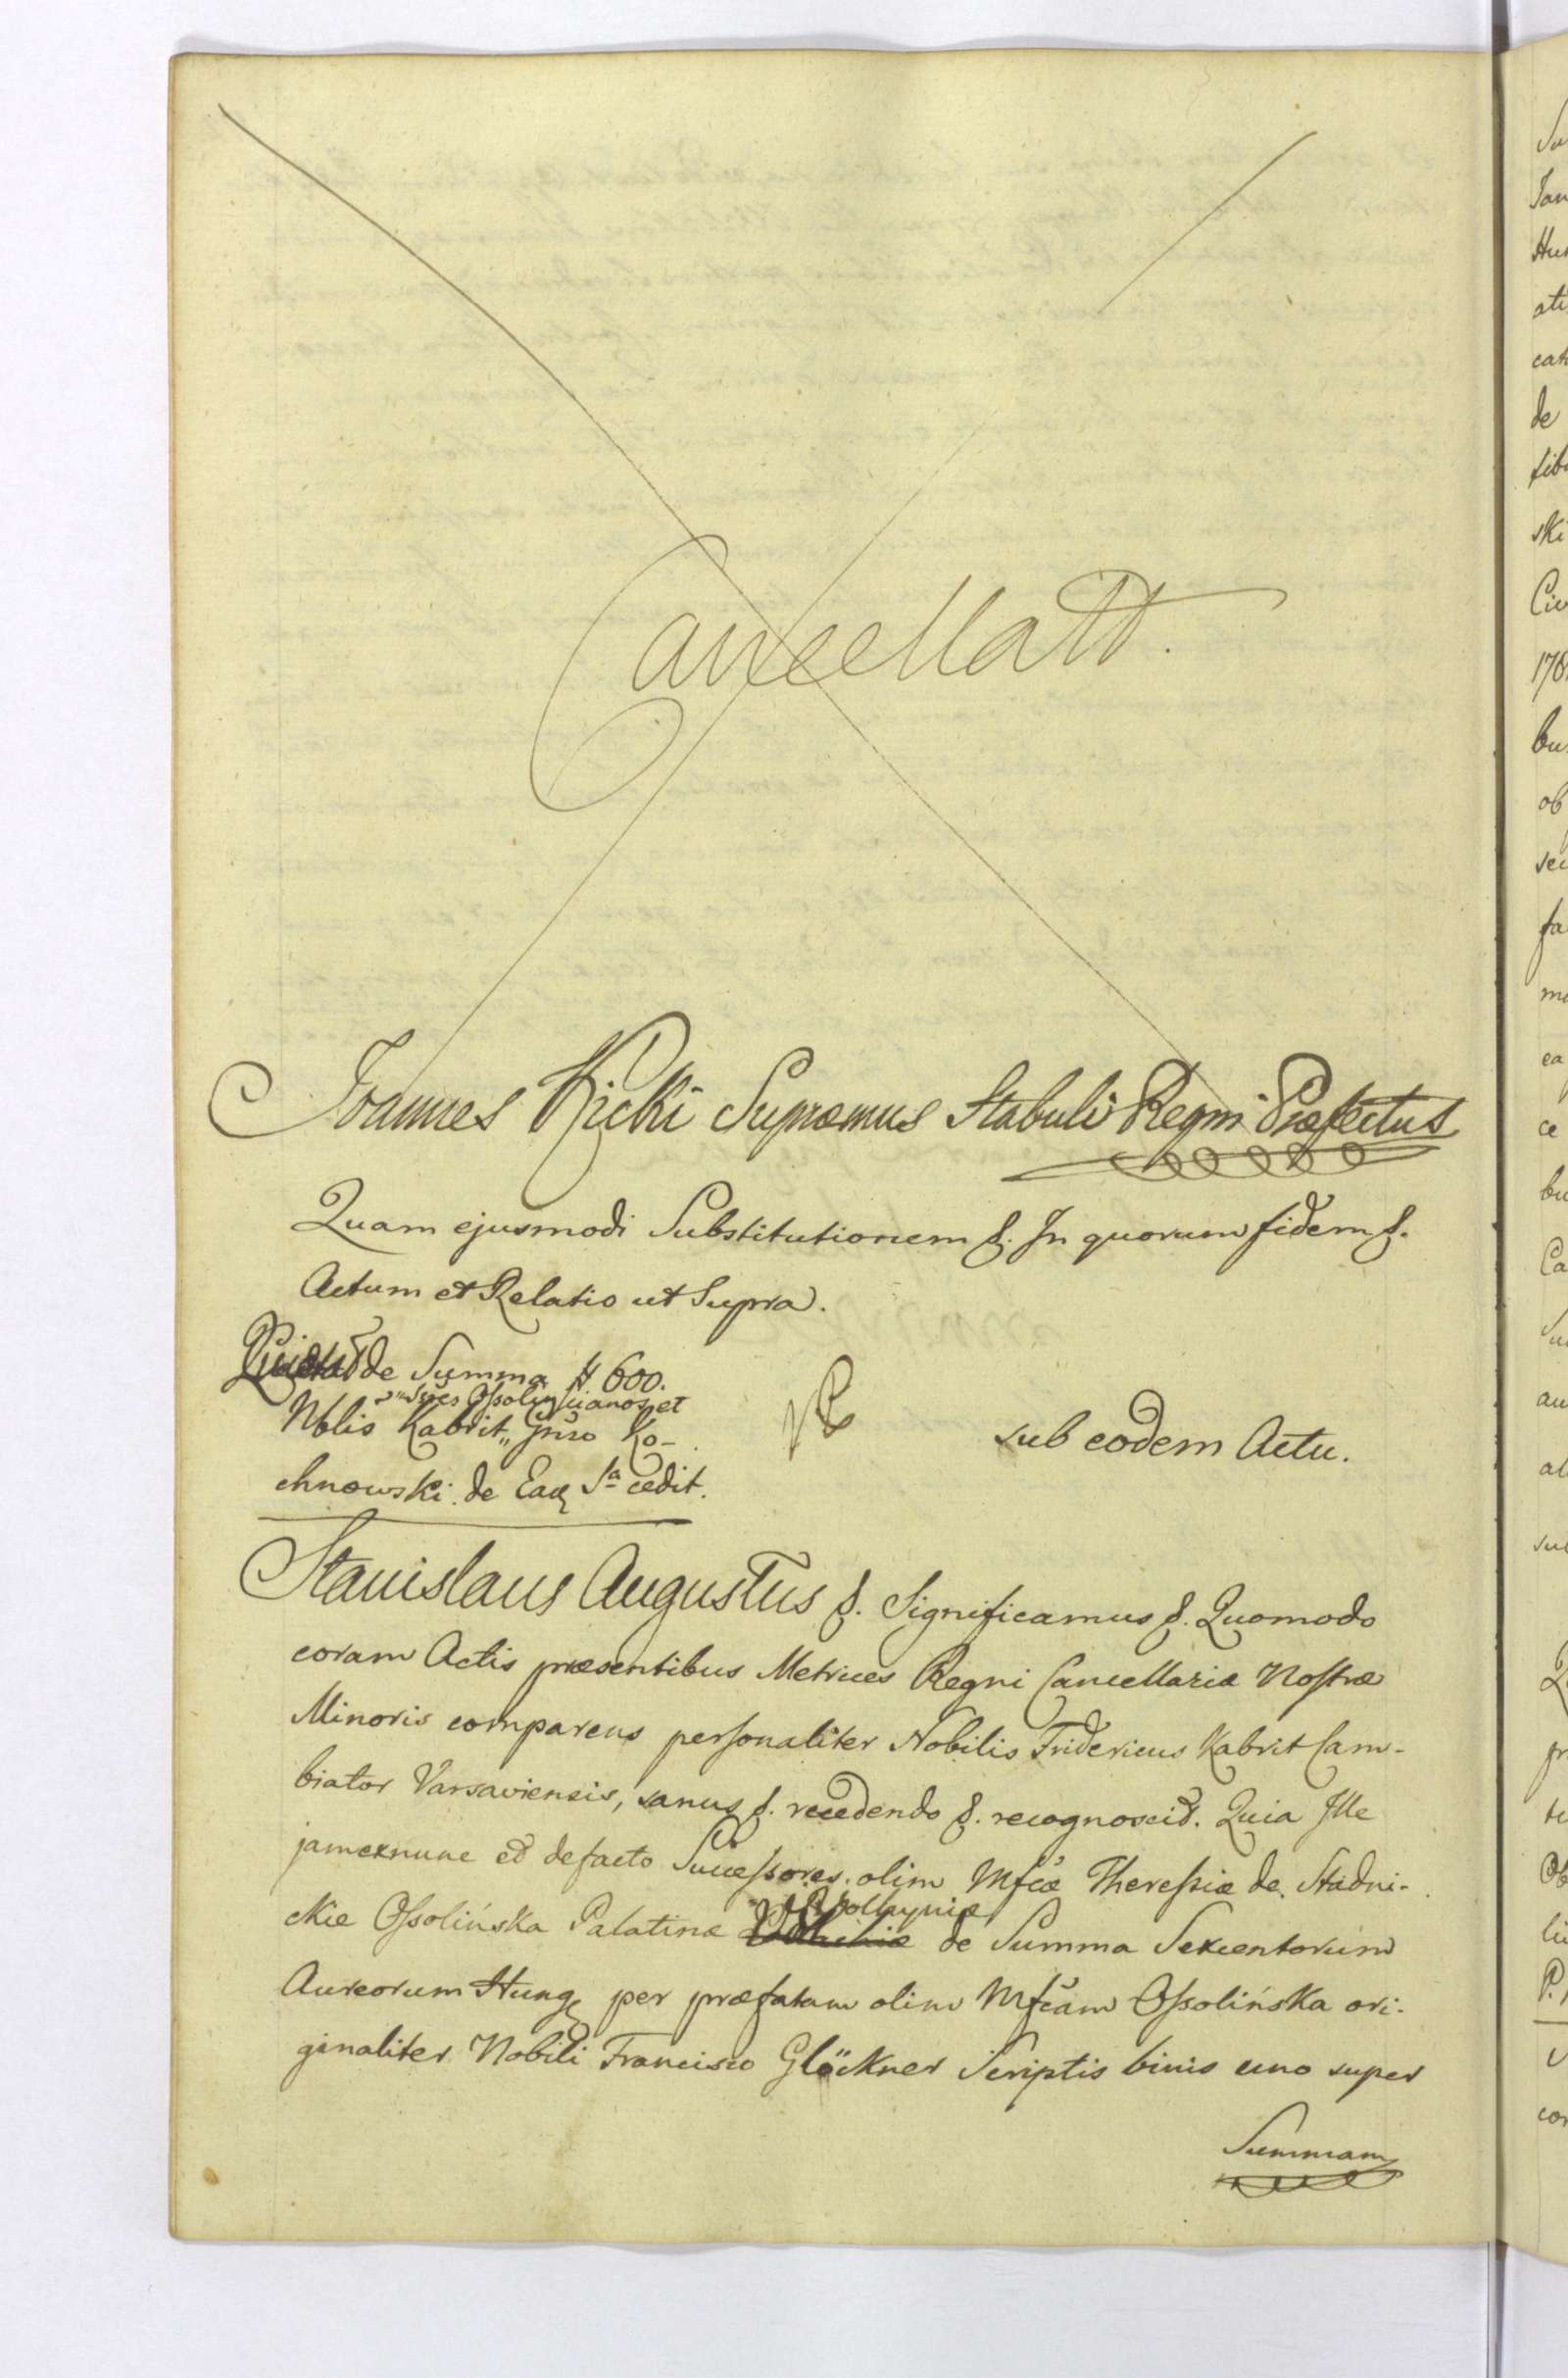 Cancellatt.
Joannes Kicki Supræmus Stabuli Regni Præfectus
Quam ejusmodi Substitutionem &. In quorum fidem &.
Actum et Relatio ut Supra.
de Summa # 600.
Sșres Ossolinscianos et
Nblis Kabrit,, Gnso Ko-
chnowski de Eadq Sa cedit.
sub eodem Actu.
Stanislaus Augustus &. Significamus &. Quomodo
coram Actis præsentibus Metrices Regni Cancellariæ Nostræ
Minoris comparens personaliter Nobilis Fridericus Kabrit Cam-
biator Varsaviensis, sanus &. recedendo &. recognoscit. Quia Ille
jamexnunc et defacto Successores olim Mfcæ Theressiæ de Stadni-
ckie Ossolińska Palatinæ Vollhyniæ de Summa Sexcentorum
Aureorum Hung per præfatam olim Mfcam Ossolińska ori-
ginaliter Nobili Francisco Glöckner Scriptis binis uno super
Summam